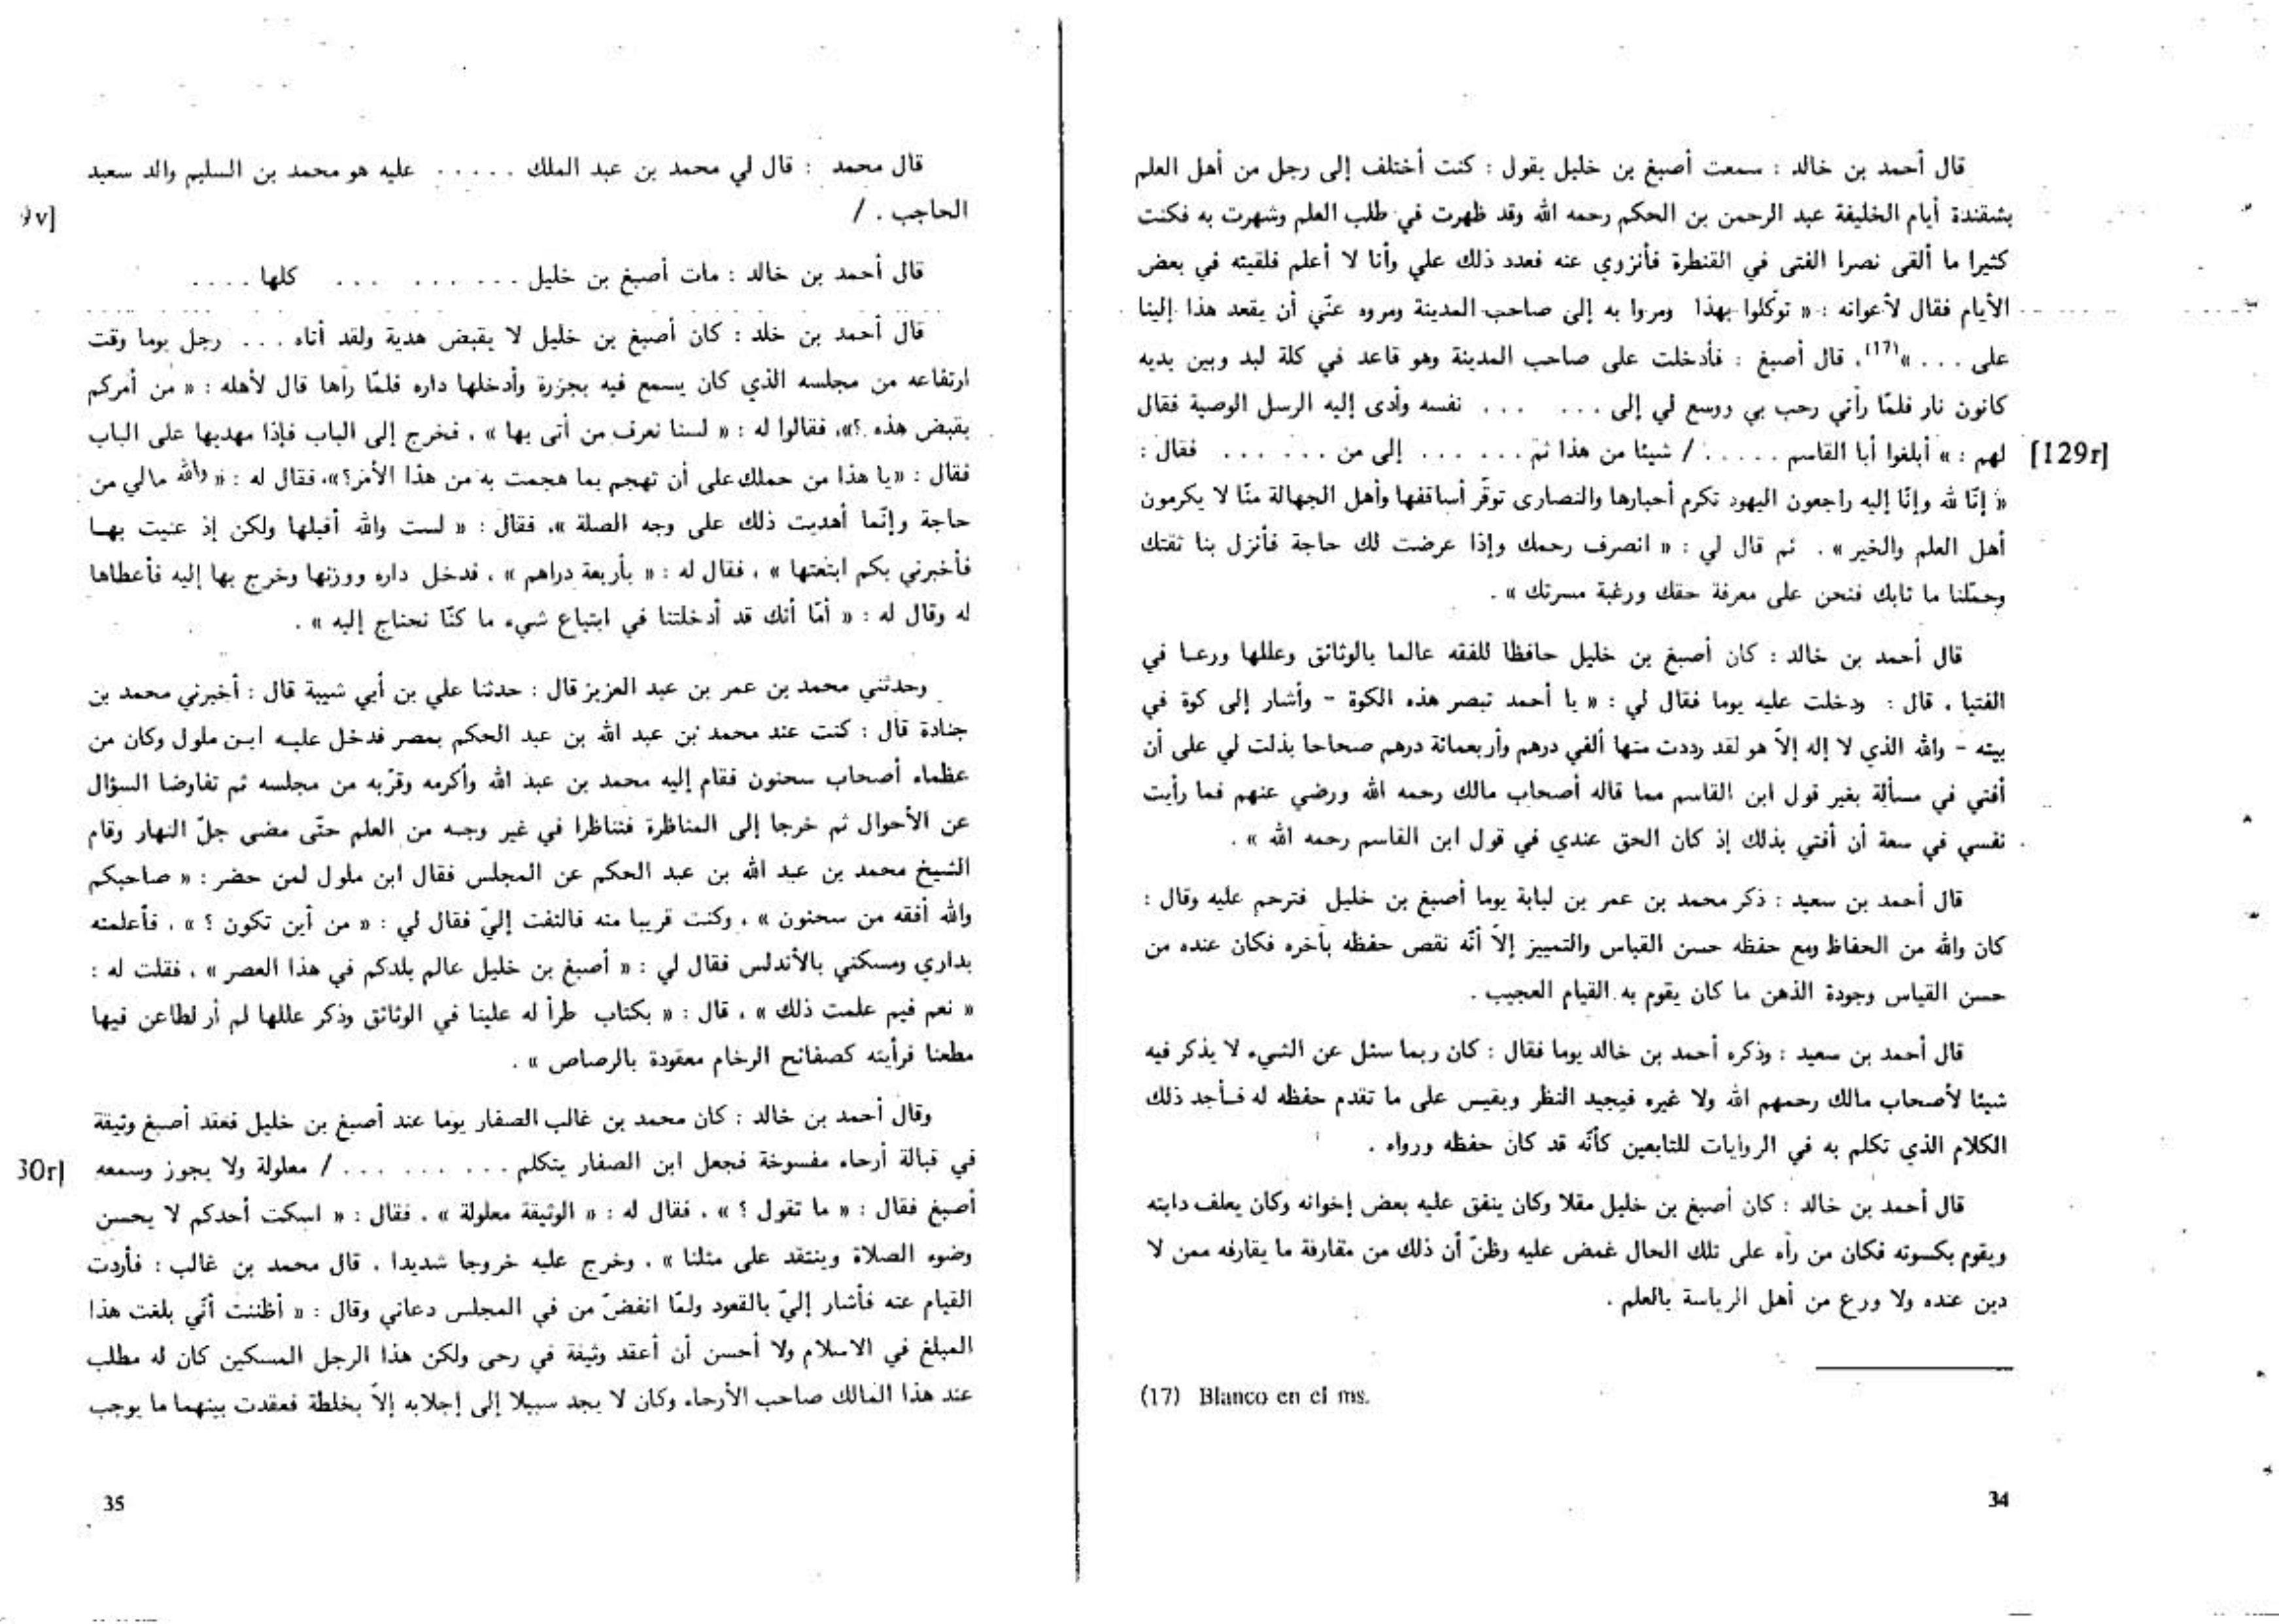 قال أحمد بن خالد : سمعت أصبغ بن خليل يقول : كنت أختلف إلى رجل من أهل العلم
بشقندة أيام الخليفة عبد الرحمن بن الحكم رحمه الله وقد ظهرت في طلب العلم وشهرت به فكنت
كثيرا ما ألقى نصرا الفتى في القنطرة فأنزوي عنه فعدد ذلك علي وأنا لا أعلم فلقيته في بعض
الأيام فقال لأعوانه : « توكّلوا بهذا ومروا به إلى صاحب المدينة ومروه عنّي أن يقعد هذا إلينا
على . . . »(17). قال أصبغ : فأدخلت على صاحب المدينة وهو قاعد في كلة لبد وبين يديه
كانون نار فلمّا رآني رحب بي ووسع لي إلى . . . . . . نفسه وأدى إليه الرسل الوصية فقال
[129r] لهم : « أبلغوا أبا القاسم . . . . . / شيئا من هذا ثم . . . . . . إلى من . . . . . . فقال :
« إنّا لله وإنّا إليه راجعون اليهود تكرم أحبارها والنصارى توقّر أساقفها وأهل الجهالة منّا لا يكرمون
أهل العلم والخير » . ثم قال لي : « انصرف رحمك وإذا عرضت لك حاجة فأنزل بنا ثقتك
وحمّلنا ما نابك فنحن على معرفة حقك ورغبة مسرتك » .
قال أحمد بن خالد : كان أصبغ بن خليل حافظا للفقه عالما بالوثائق وعللها ورعا في
الفتيا . قال : ودخلت عليه يوما فقال لي : « يا أحمد تبصر هذه الكوة - وأشار إلى كوة في
بيته - والله الذي لا إله إلاّ هو لقد رددت منها ألفي درهم وأربعمائة درهم صحاحا بذلت لي على أن
أفتي في مسألة بغير قول ابن القاسم مما قاله أصحاب مالك رحمه الله ورضي عنهم فما رأيت
نفسي في سعة أن أفتي بذلك إذ كان الحق عندي في قول ابن القاسم رحمه الله » .
قال أحمد بن سعيد : ذكر محمد بن عمر بن لبابة يوما أصبغ بن خليل فترحم عليه وقال :
كان والله من الحفاظ ومع حفظه حسن القياس والتمييز إلاّ أنّه نقص حفظه بآخره فكان عنده من
حسن القياس وجودة الذهن ما كان يقوم به القيام العجيب .
قال أحمد بن سعيد : وذكره أحمد بن خالد يوما فقال : كان ربما سئل عن الشيء لا يذكر فيه
شيئا لأصحاب مالك رحمهم الله ولا غيره فيجيد النظر ويقيس على ما تقدم حفظه له فأجد ذلك
الكلام الذي تكلم به في الروايات للتابعين كأنّه قد كان حفظه ورواه .
قال أحمد بن خالد : كان أصبغ بن خليل مقلا وكان ينفق عليه بعض إخوانه وكان يعلف دابته
ويقوم بكسوته فكان من رآه على تلك الحال غمض عليه وظنّ أن ذلك من مقارفة ما يقارفه ممن لا
دين عنده ولا ورع من أهل الرياسة بالعلم .
(17) Blanco en el ms.
34
قال محمد : قال لي محمد بن عبد الملك . . . . . عليه هو محمد بن السليم والد سعيد
الحاجب . / 9v]
قال أحمد بن خالد : مات أصبغ بن خليل . . . . . . . . . كلها . . . .
قال أحمد بن خلد : كان أصبغ بن خليل لا يقبض هدية ولقد أتاه . . . رجل يوما وقت
ارتفاعه من مجلسه الذي كان يسمع فيه بجزرة وأدخلها داره فلمّا رآها قال لأهله : « من أمركم
بقبض هذه ؟»، فقالوا له : « لسنا نعرف من أتى بها » . فخرج إلى الباب فإذا مهديها على الباب
فقال : «يا هذا من حملك على أن تهجم بما هجمت به من هذا الأمر؟»، فقال له : « والله مالي من
حاجة وإنّما أهديت ذلك على وجه الصلة ». فقال : « لست والله أقبلها ولكن إذ عنيت بها
فأخبرني بكم ابتعتها » ، فقال له : « بأربعة دراهم » ، فدخل داره ووزنها وخرج بها إليه فأعطاها
له وقال له : « أمّا أنك قد أدخلتنا في ابتياع شيء ما كنّا نحتاج إليه » .
وحدثني محمد بن عمر بن عبد العزيز قال : حدثنا علي بن أبي شيبة قال : أخبرني محمد بن
جنادة قال : كنت عند محمد بن عبد الله بن عبد الحكم بمصر فدخل عليه ابن ملول وكان من
عظماء أصحاب سحنون فقام إليه محمد بن عبد الله وأكرمه وقرّبه من مجلسه ثم تفاوضا السؤال
عن الأحوال ثم خرجا إلى المناظرة فتناظرا في غير وجه من العلم حتّى مضى جلّ النهار وقام
الشيخ محمد بن عبد الله بن عبد الحكم عن المجلس فقال ابن ملول لمن حضر : « صاحبكم
والله أفقه من سحنون » ، وكنت قريبا منه فالتفت إليّ فقال لي : « من أين تكون ؟ » ، فأعلمته
بداري ومسكني بالأندلس فقال لي : « أصبغ بن خليل عالم بلدكم في هذا العصر » ، فقلت له :
« نعم فيم علمت ذلك » ، قال : « بكتاب طرأ له علينا في الوثائق وذكر عللها لم أر لطاعن فيها
مطعنا فرأيته كصفائح الرخام معقودة بالرصاص » .
وقال أحمد بن خالد : كان محمد بن غالب الصفار يوما عند أصبغ بن خليل فعقد أصبغ وثيقة
في قبالة أرحاء مفسوخة فجعل ابن الصفار يتكلم . . . . . . . . . / معلولة ولا يجوز وسمعه 30r]
أصبغ فقال : « ما تقول ؟ » ، فقال له : « الوثيقة معلولة » . فقال : « اسكت أحدكم لا يحسن
وضوء الصلاة وينتقد على مثلنا » ، وخرج عليه خروجا شديدا . قال محمد بن غالب : فأردت
القيام عنه فأشار إليّ بالقعود ولمّا انفضّ من في المجلس دعاني وقال : « أظننت أنّي بلغت هذا
المبلغ في الاسلام ولا أحسن أن أعقد وثيقة في رحى ولكن هذا الرجل المسكين كان له مطلب
عند هذا المالك صاحب الأرحاء وكان لا يجد سبيلا إلى إجلابه إلاّ بخلطة فعقدت بينهما ما يوجب
35